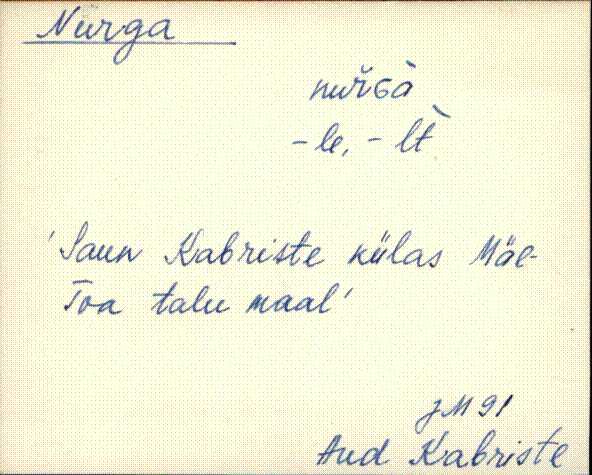 Nurga
nuřGà
-le, - lt̀
'Saun Kabriste külas Mäe-
Toa talu maal'
JM 91
Aud Kabriste